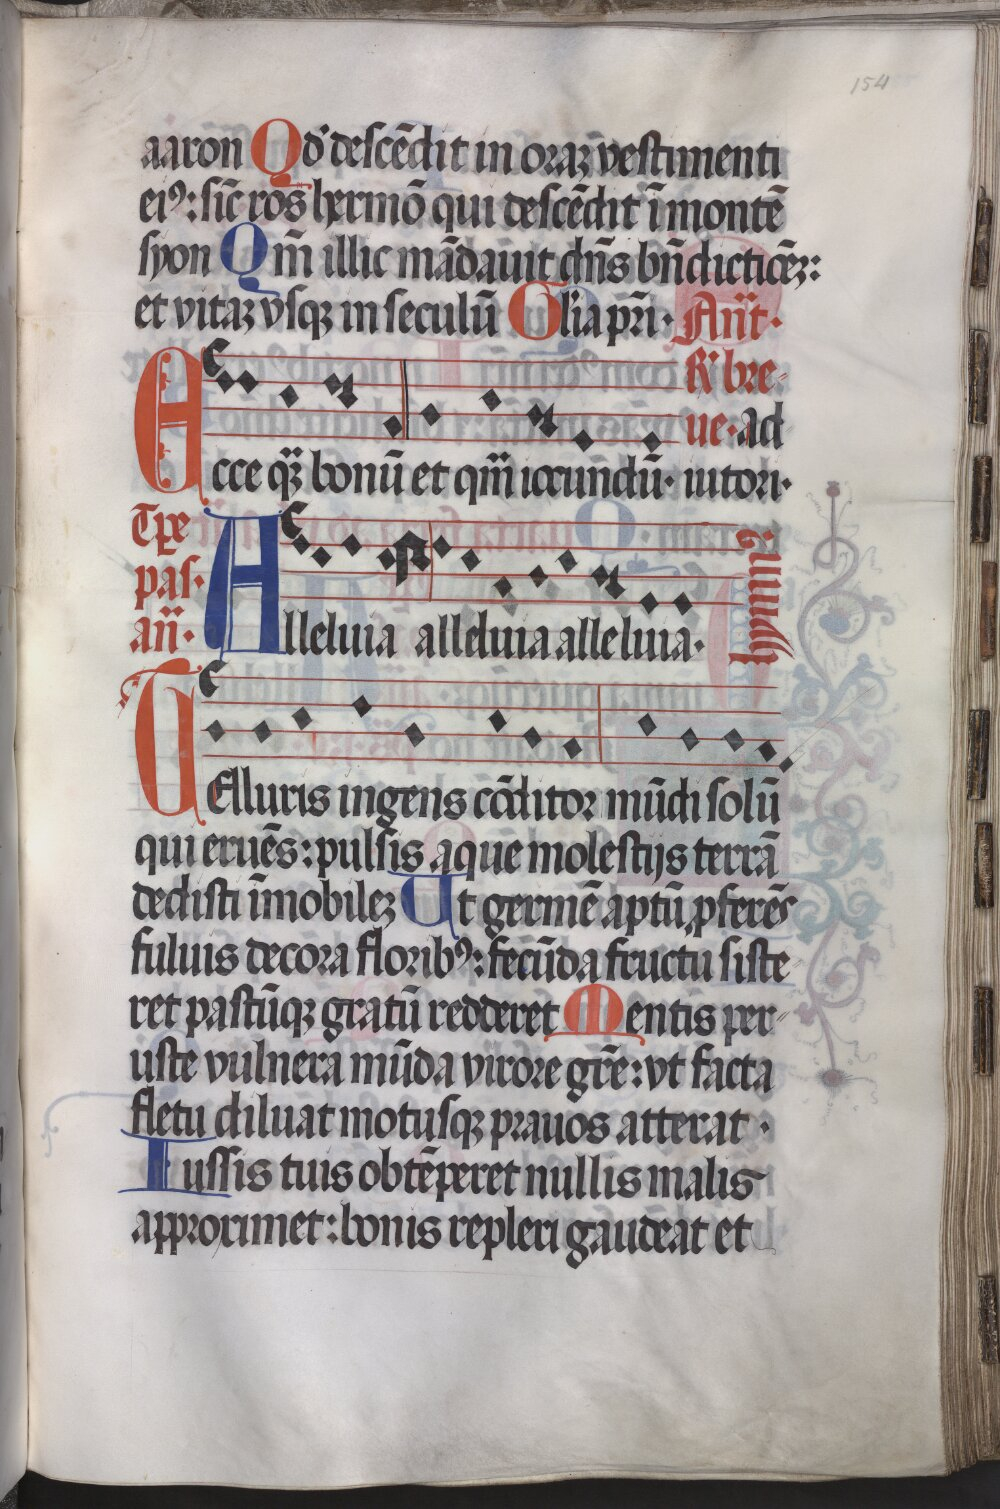 154
aaron Qđ descēdit in oraꝫ vestimenti
eiꝰ: sic̄ ros hermō qui descēdit ī montē
syon Qm̄ illic mādauit dn̄s bn̄dictiōēꝫ:
et vitaꝫ vsqꝫ in seculū Gl̄ia pr̄i. Añt.
R̄ bre-
Ecce qꝫ bonū et qm̄ iocundū. ue. ad iutori.
Tp̄e
pas.
añ. Alleluia alleluia alleluia. hymnꝰ.
Telluris ingens cōditor mūdi solū
qui eruēs: pulsis aque molestijs terrā
dedisti īmobileꝫ Ut germē aptū ꝓferēs
fuluis decora floribꝰ: fecūda fructu siste
ret pastūqꝫ gratū redderet Mentis per-
uste vulnera mūda virore gr̄e: vt facta
fletu diluat motusqꝫ prauos atterat.
Iussis tuis obtēperet nullis malis
approximet: bonis repleri gaudeat et